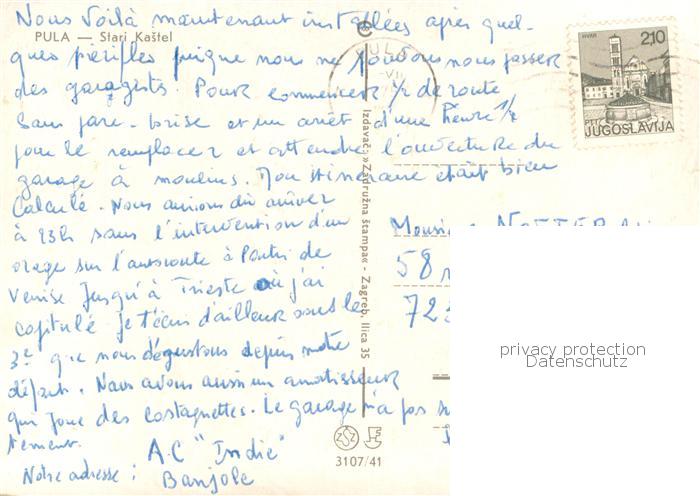 Nous voilà maintenant installées après quel-
PULA — Stari Kaštel
ques périples puisque nous ne pouvons nous passer
des garagists. Pour commencer 1/2 de route
sans pare-brise et un arrêt d'une heure 1/2
pour le remplacer et attendre l'ouverture du
garage à moulins. Mon itinéraire était bien
calculé. Nous aurions dû arriver
à 23h sans l'intervention d'un
orage sur l'autoroute à Partir de
Venise jusqu'à Trieste où j'ai
capitulé je t'écris d'ailleurs sous le
3e que nous dégustons depuis notre
départ. Nous avons aussi un amortisseur
qui joue des castagnettes. Le garage n'a pas
tement.
A.C "Indie"
Notre adresse : Banjole
Izdavač: »Zadružna štampa« - Zagreb, Ilica 35
3107/41
PULA
HVAR
2,10
PTT
JUGOSLAVIJA
Monsieur
58
72
privacy protection
Datenschutz